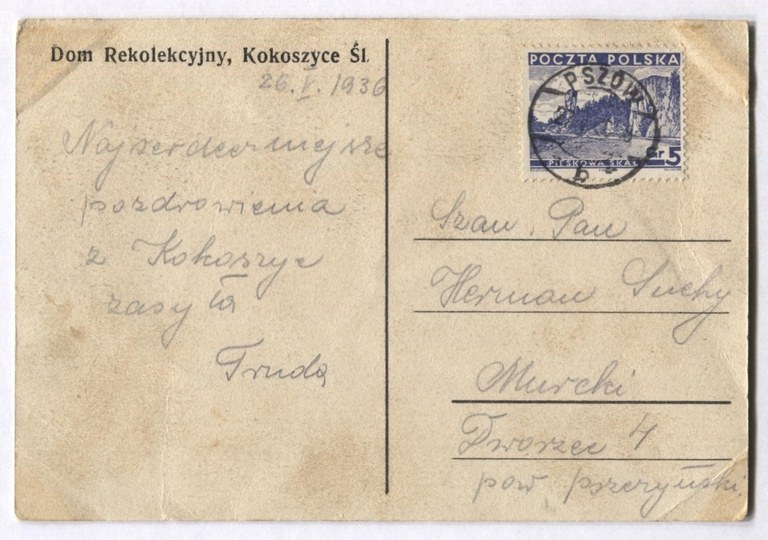 Dom Rekolekcyjny, Kokoszyce Śl.
26. V. 1936
Najserdeczniejsze
pozdrowienia
z Kokoszyc
zasyła
Truda
POCZTA POLSKA
PIESKOWA SKAŁA
Gr 5
PSZÓW
Szan. Pan
Herman Suchy
Murcki
Dworzec 4
pow pszczyński